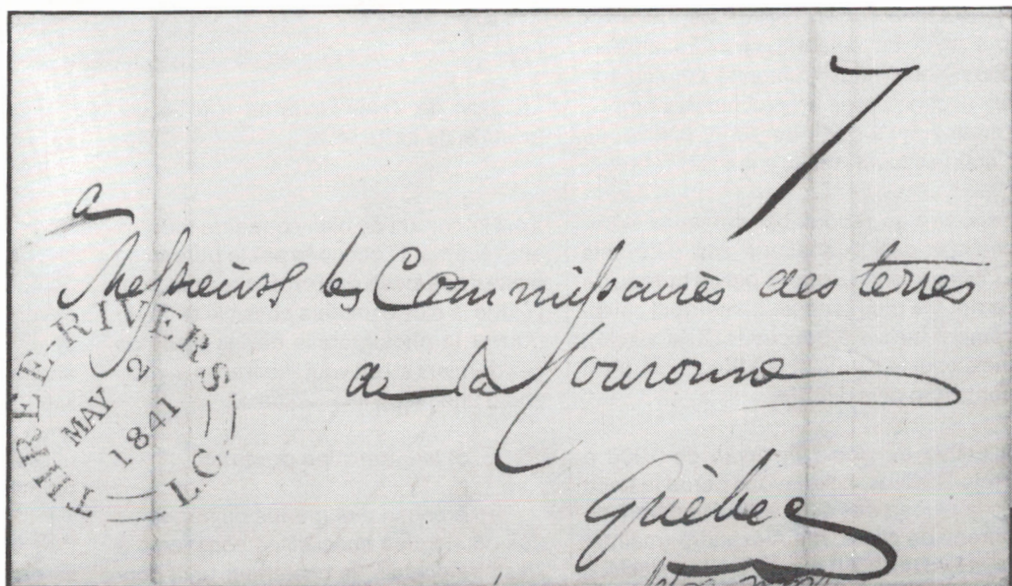 7
a
Messieurs les Commissaires des terres
de la Couronne
Québec
THREE-RIVERS
MAY 2
1841
L.C.